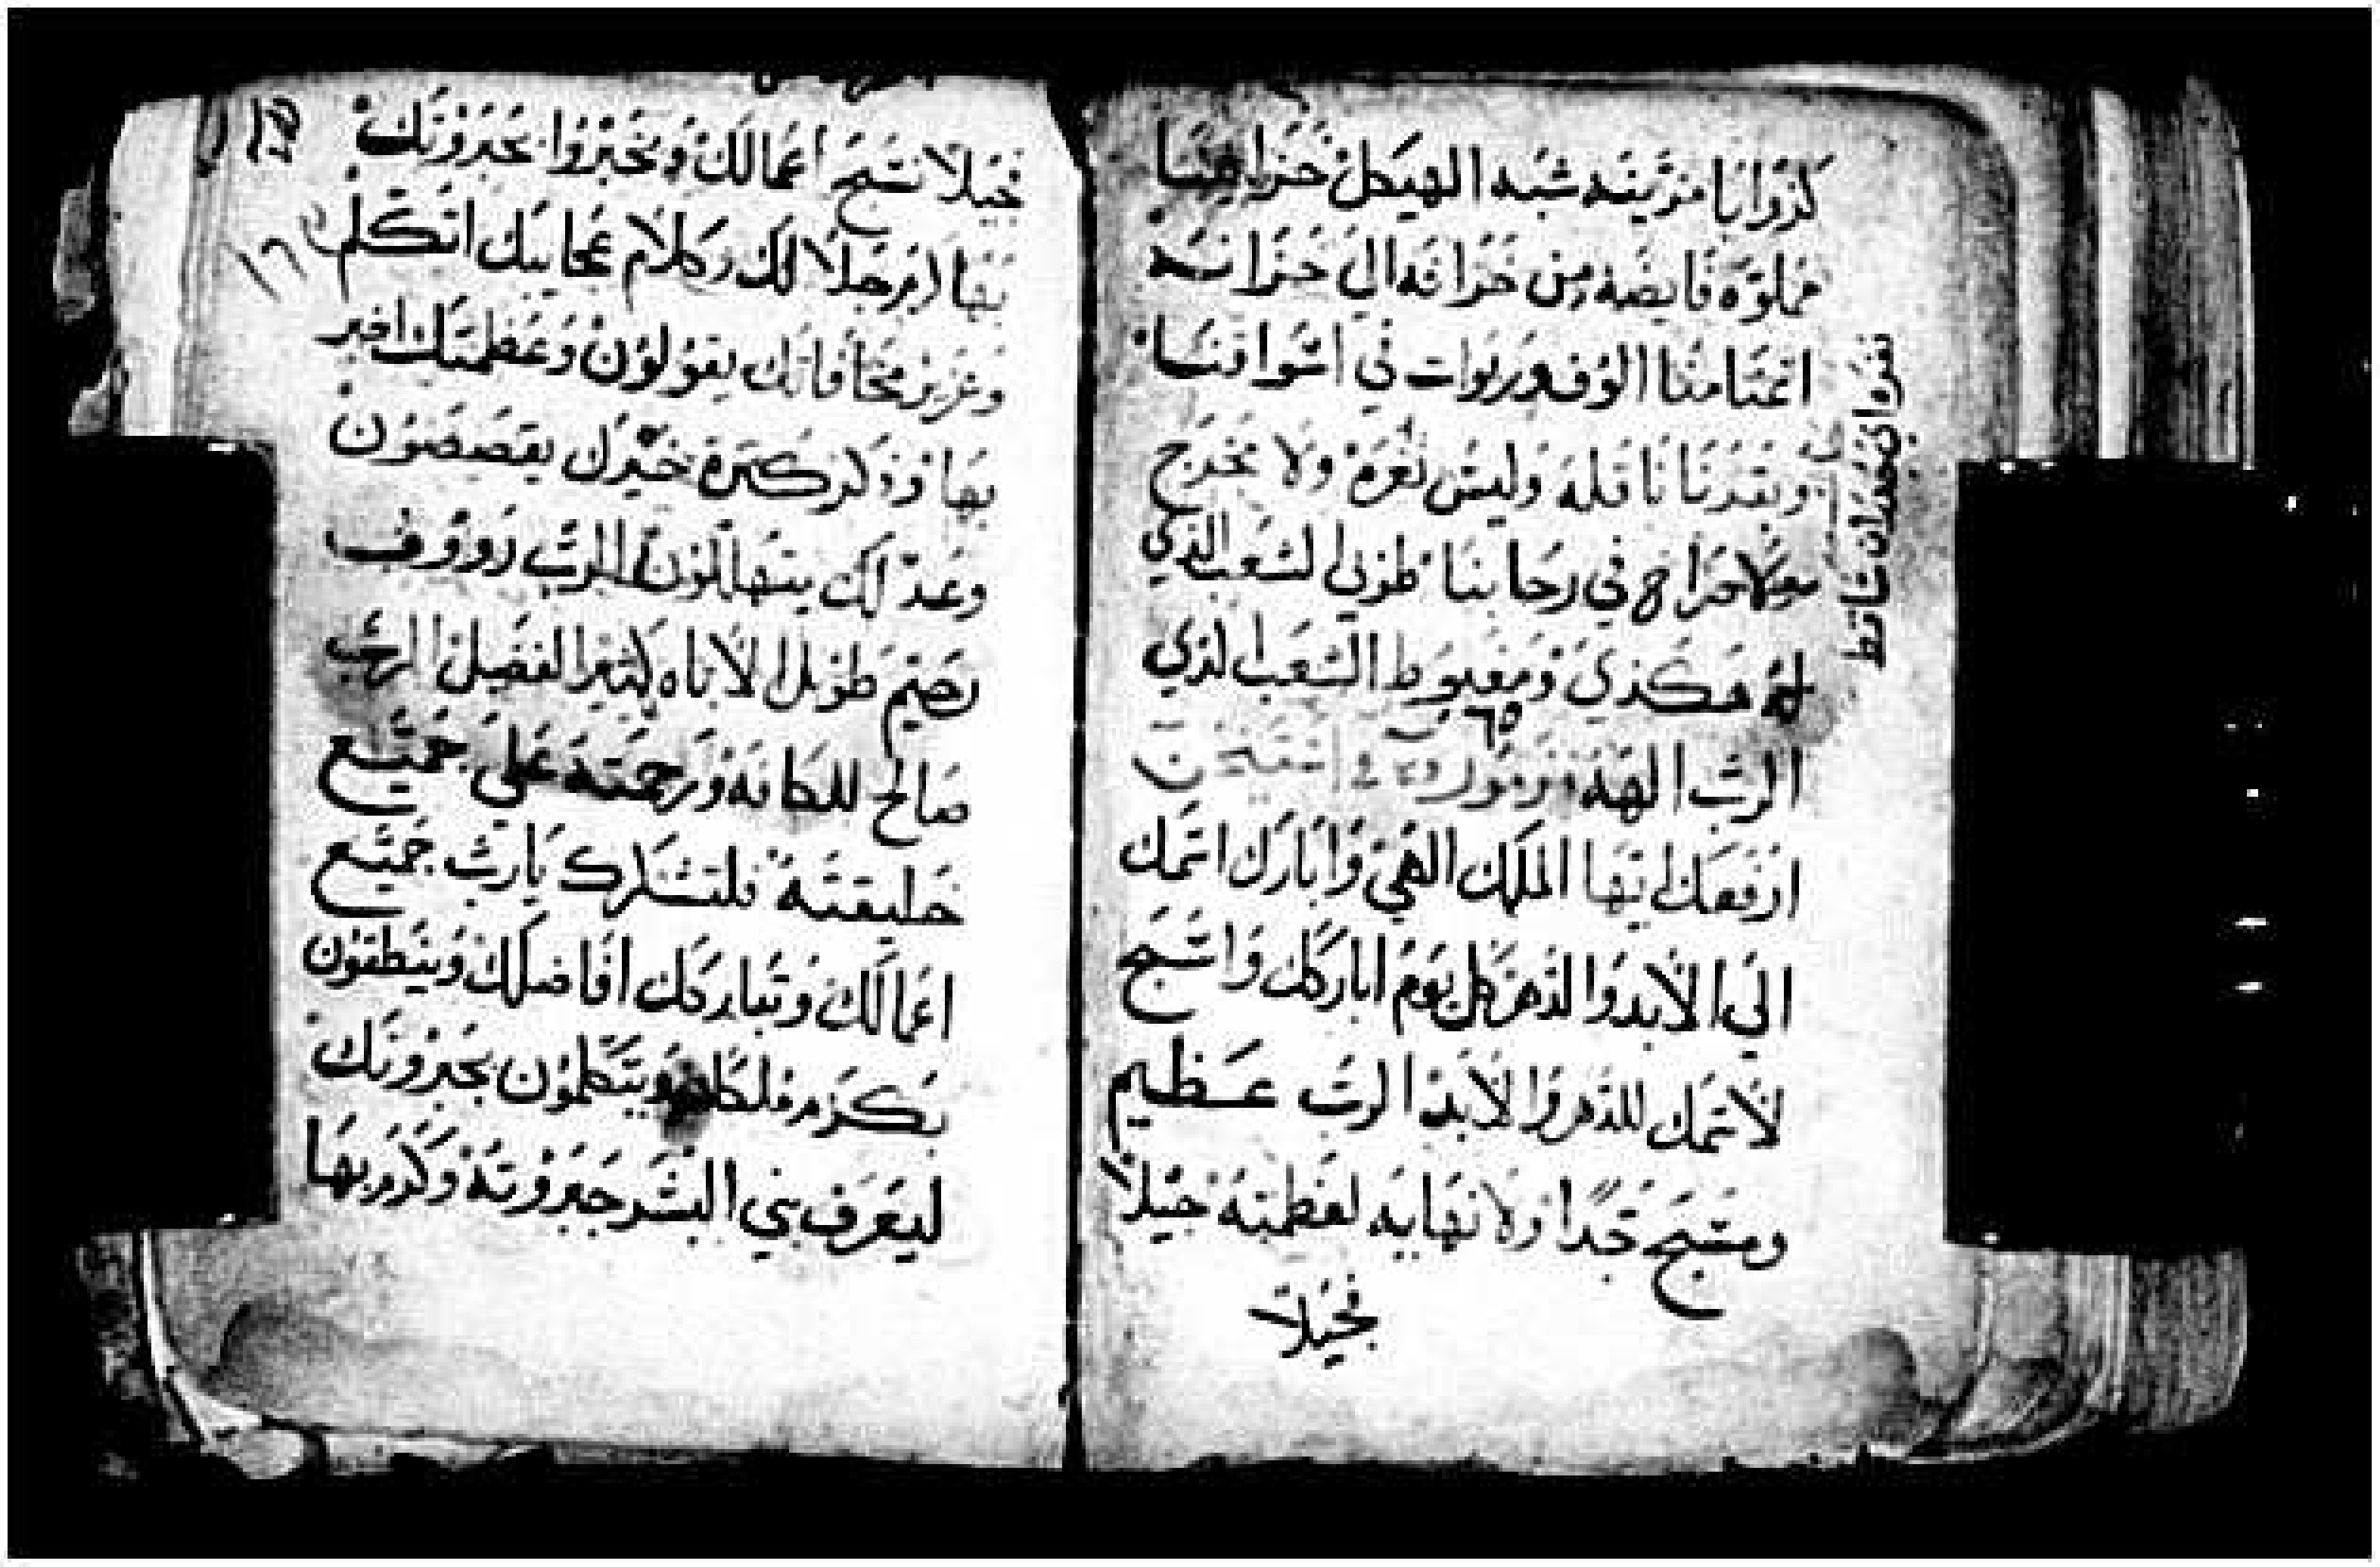 كزوايا مزينه شبه الهيكل خزاينا
مملوه فايضه من خزانه الي خزانه
اغنامنا الوف وربوات في اسواقنا
وبقرنا ناقله وليس ثغره ولا مخرج
ولا صراخ في رحابنا طوبي لشعب الذي
له هكذي ومغبوط الشعب الذي
الرب الهه
ارفعك ايها الملك الهي وابارك اسمك
الي الابد والدهر كل يوم اباركك واسبح
لاسمك للدهر والابد الرب عظيم
ومسبح جدا ولا نهايه لعظمته جيلا
فجيلا
فجيلا تسبح اعمالك ويخبروا بجبروتك
بها جلالك وكلام عجايبك اتكلم
وعزيز مخافاتك يقولون وعظمتك اخبر
بها وذكر كثرة خيرك يقصصون
وعدلك يتهللون الرب رووف
رحيم طويل الاناه كثير الفضل الرب
صالح للكافه ورحمته علي جميع
خليقته فلتشكرك يارب جميع
اعمالك وتباركك افاضلك وينطقون
بكرم ملكك ويتكلمون بجبروتك
ليعرف بني البشر جبروته وكرم بها